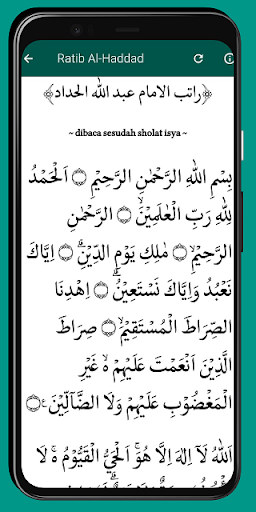 Ratib Al-Haddad
﴿راتب الامام عبد الله الحداد﴾
~ dibaca sesudah sholat isya ~
بِسْمِ اللهِ الرَّحْمٰنِ الرَّحِيْمِ ۝ اَلْحَمْدُ
لِلهِ رَبِّ الْعٰلَمِيْنَۙ ۝ الرَّحْمٰنِ
الرَّحِيْمِۙ ۝ مٰلِكِ يَوْمِ الدِّيْنِۗ ۝ اِيَّاكَ
نَعْبُدُ وَاِيَّاكَ نَسْتَعِيْنُۗ ۝ اِهْدِنَا
الصِّرَاطَ الْمُسْتَقِيْمَۙ ۝ صِرَاطَ
الَّذِيْنَ اَنْعَمْتَ عَلَيْهِمْ ەۙ غَيْرِ
الْمَغْضُوْبِ عَلَيْهِمْ وَلَا الضَّاۤلِّيْنَ ۝
اَللهُ لَآ اِلٰهَ اِلَّا هُوَۚ اَلْحَيُّ الْقَيُّوْمُ ەۚ لَا
تَأْخُذُهٗ سِنَةٌ وَّلَا نَوْمٌۗ لَهٗ مَا